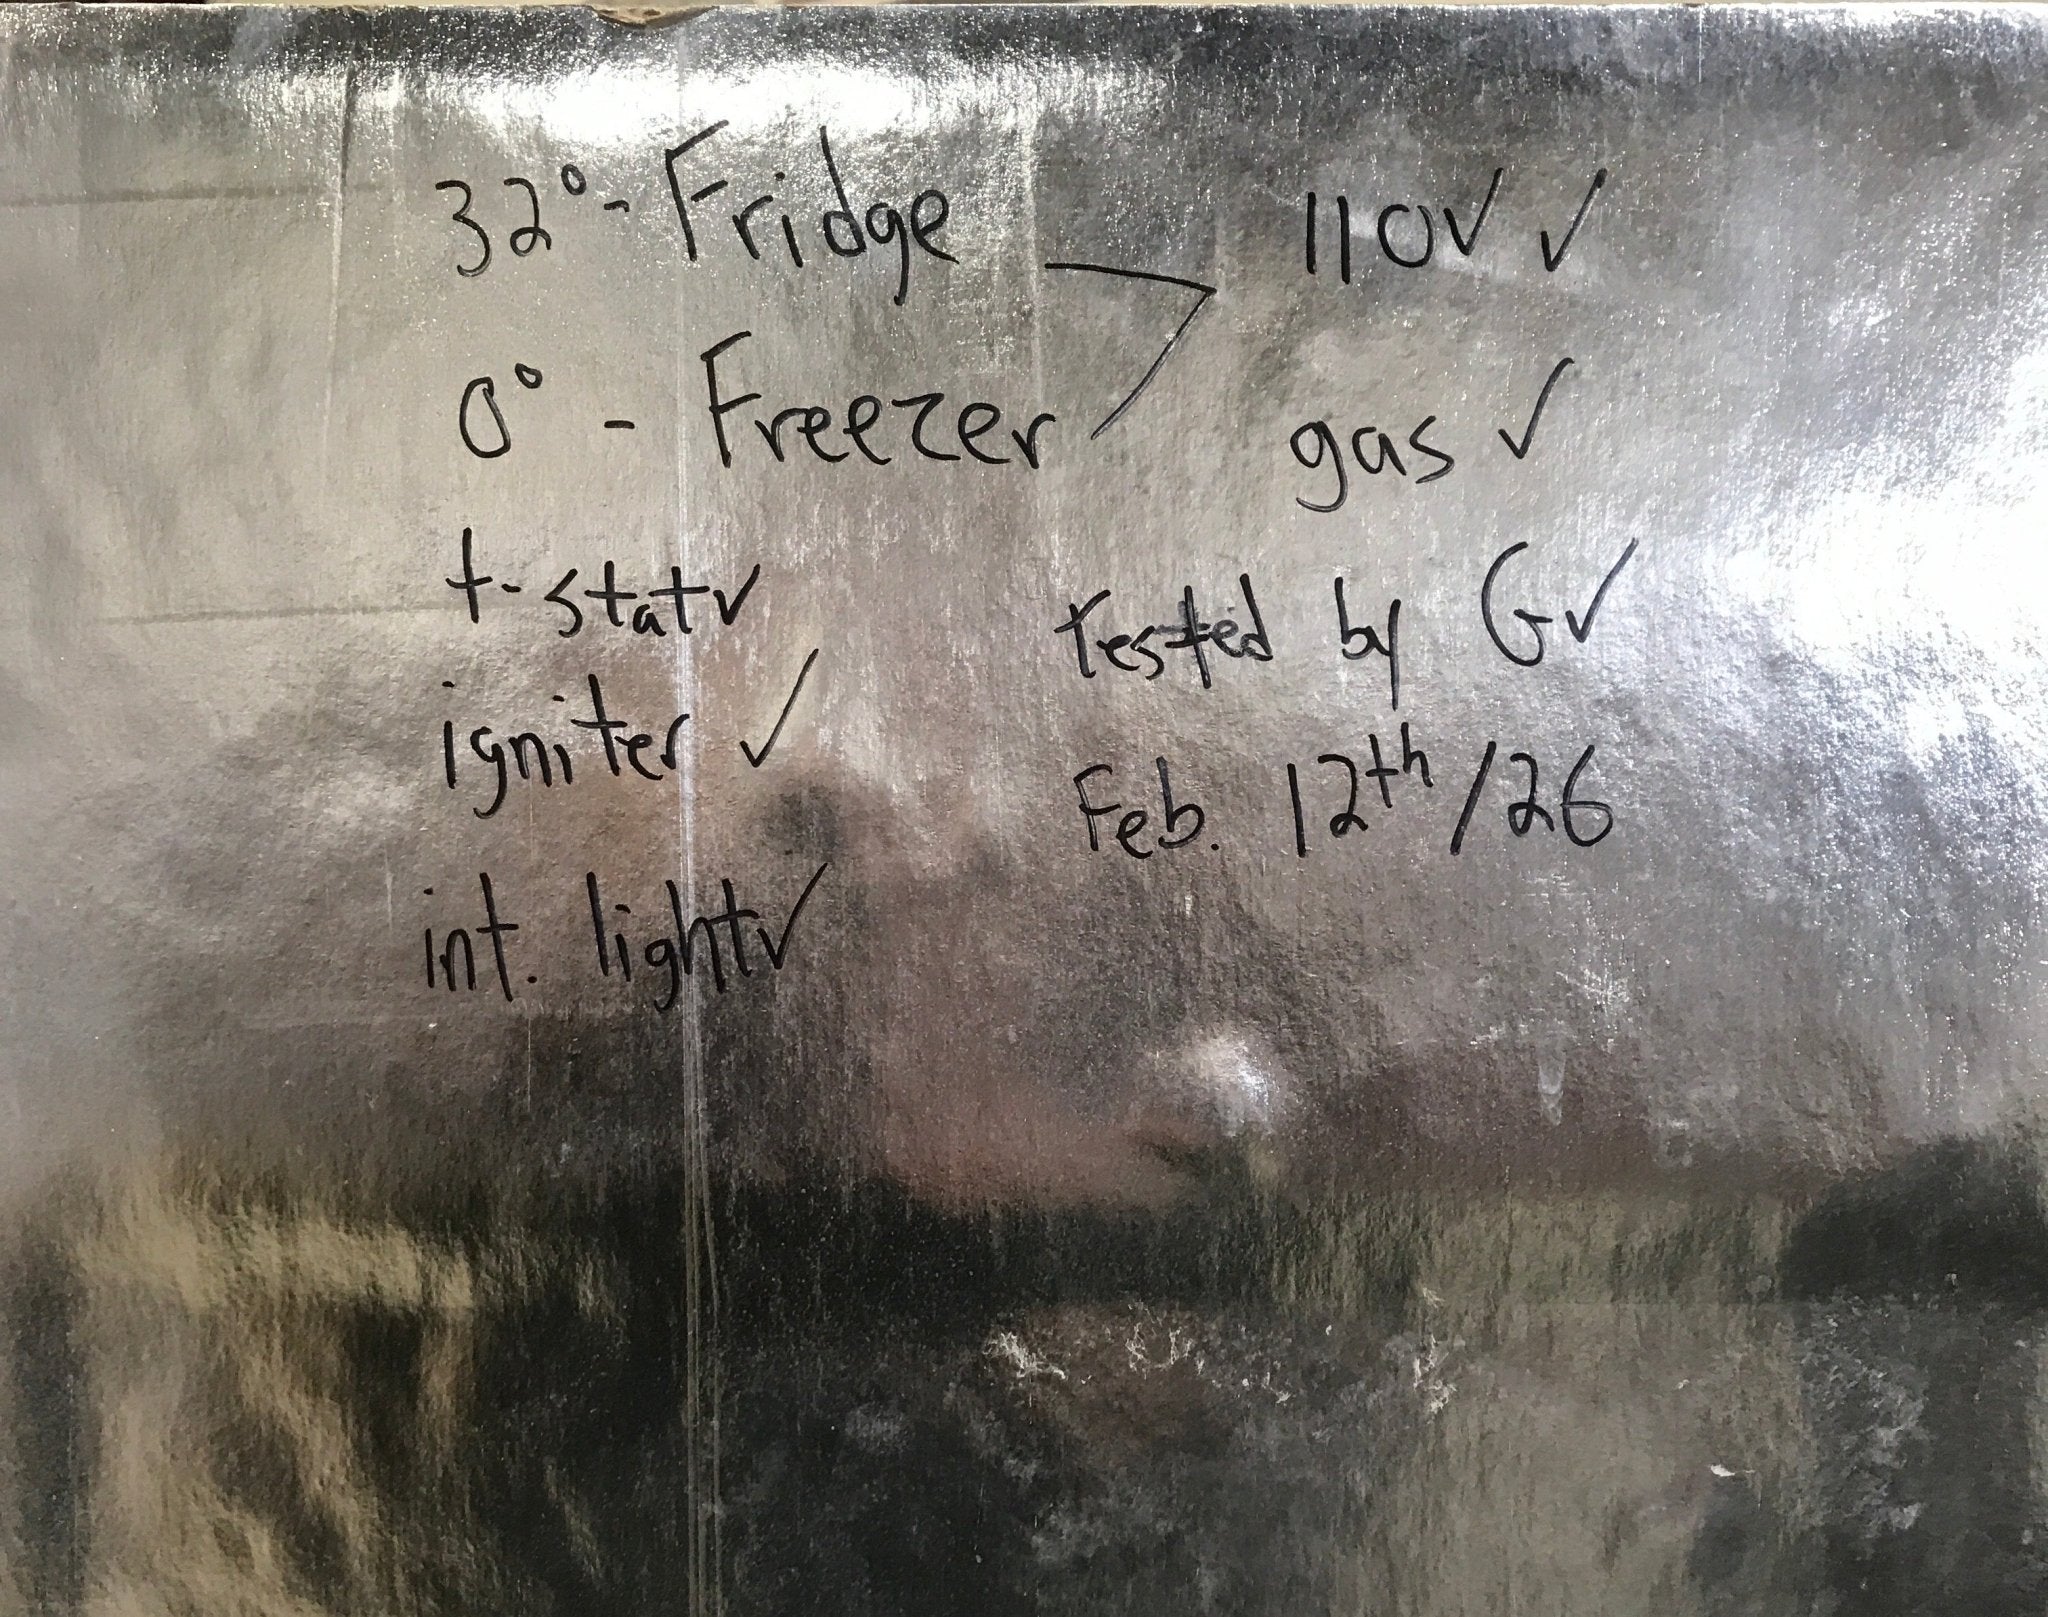 32° - Fridge
0° - Freezer
110V ✓
gas ✓
t-stat ✓
igniter ✓
int. light ✓
Tested by G ✓
Feb. 12th/26